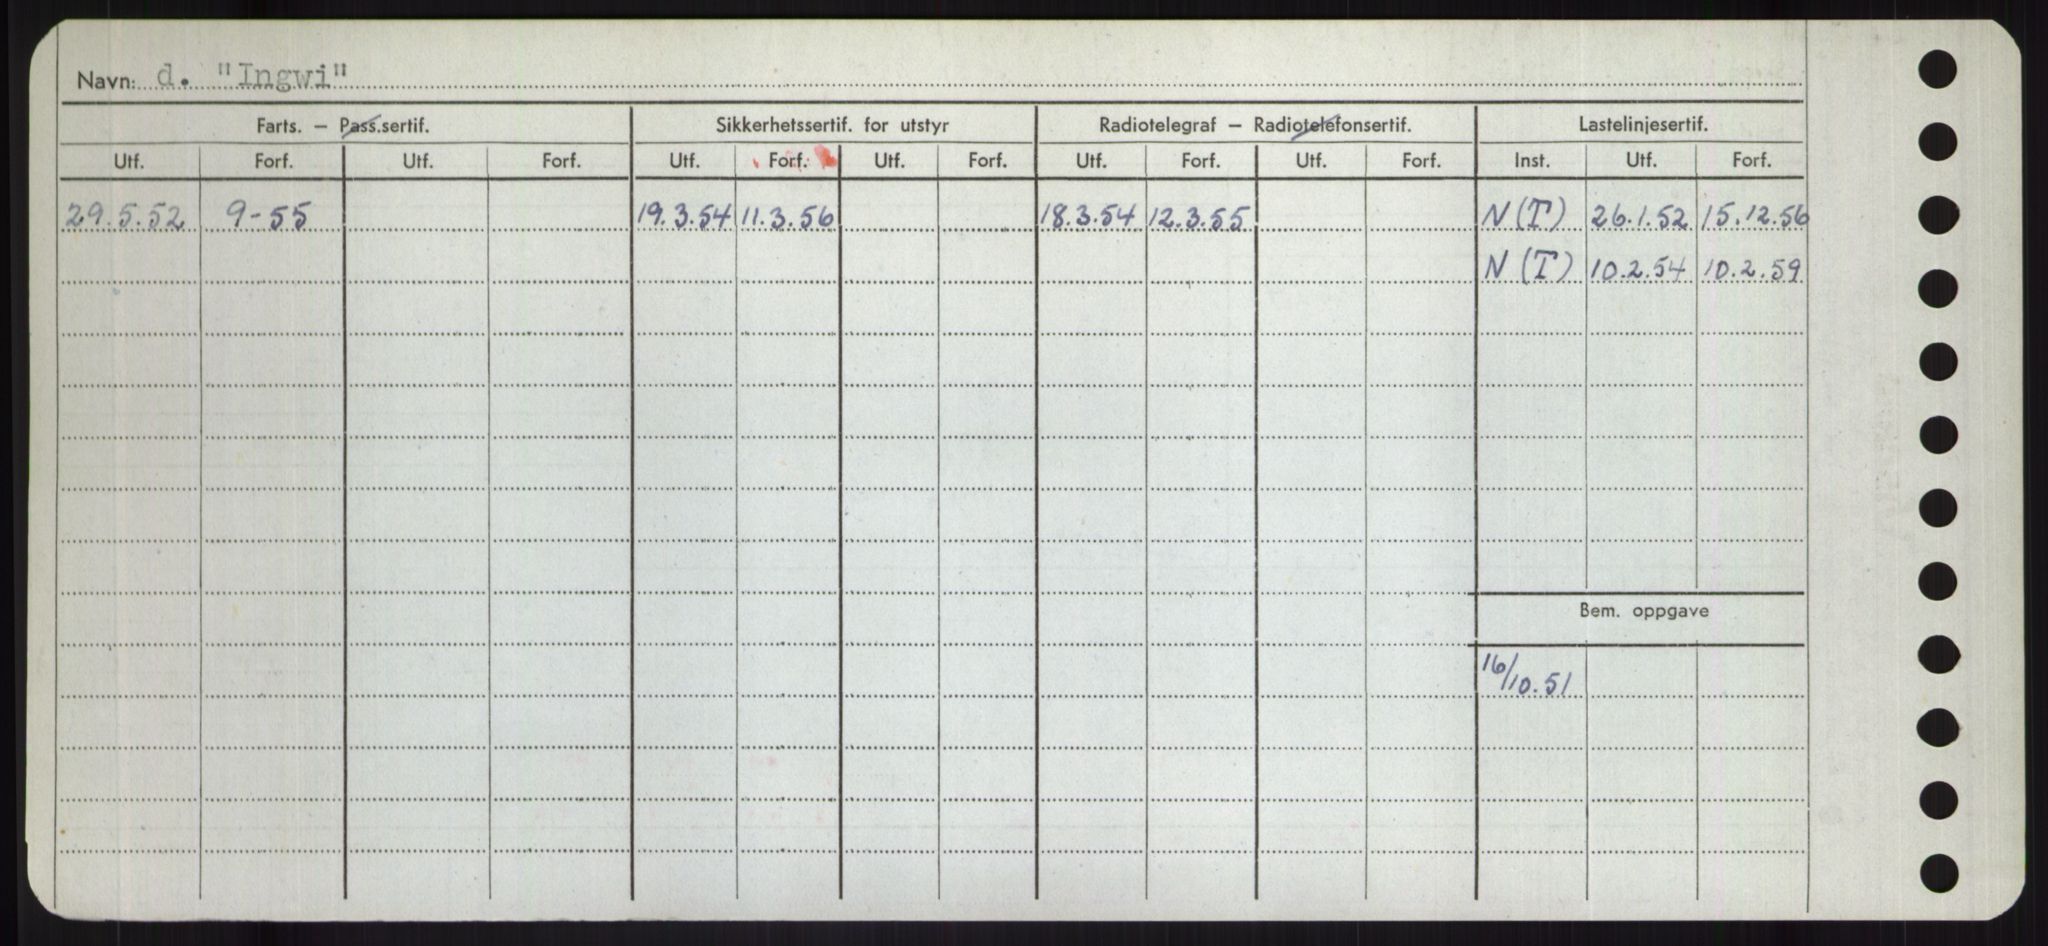 Navn: d. "Ingwi"
Farts. – Pass.sertif. Sikkerhetssertif. for utstyr Radiotelegraf – Radiotelefonsertif. Lastelinjesertif.
Utf. Forf. Utf. Forf. Utf. Forf. Utf. Forf. Utf. Forf. Utf. Forf. Inst. Utf. Forf.
29.5.52 9-55 19.3.54 11.3.56 18.3.54 12.3.55 N(T) 26.1.52 15.12.56
N(T) 10.2.54 10.2.59
Bem. oppgave
16/10.51